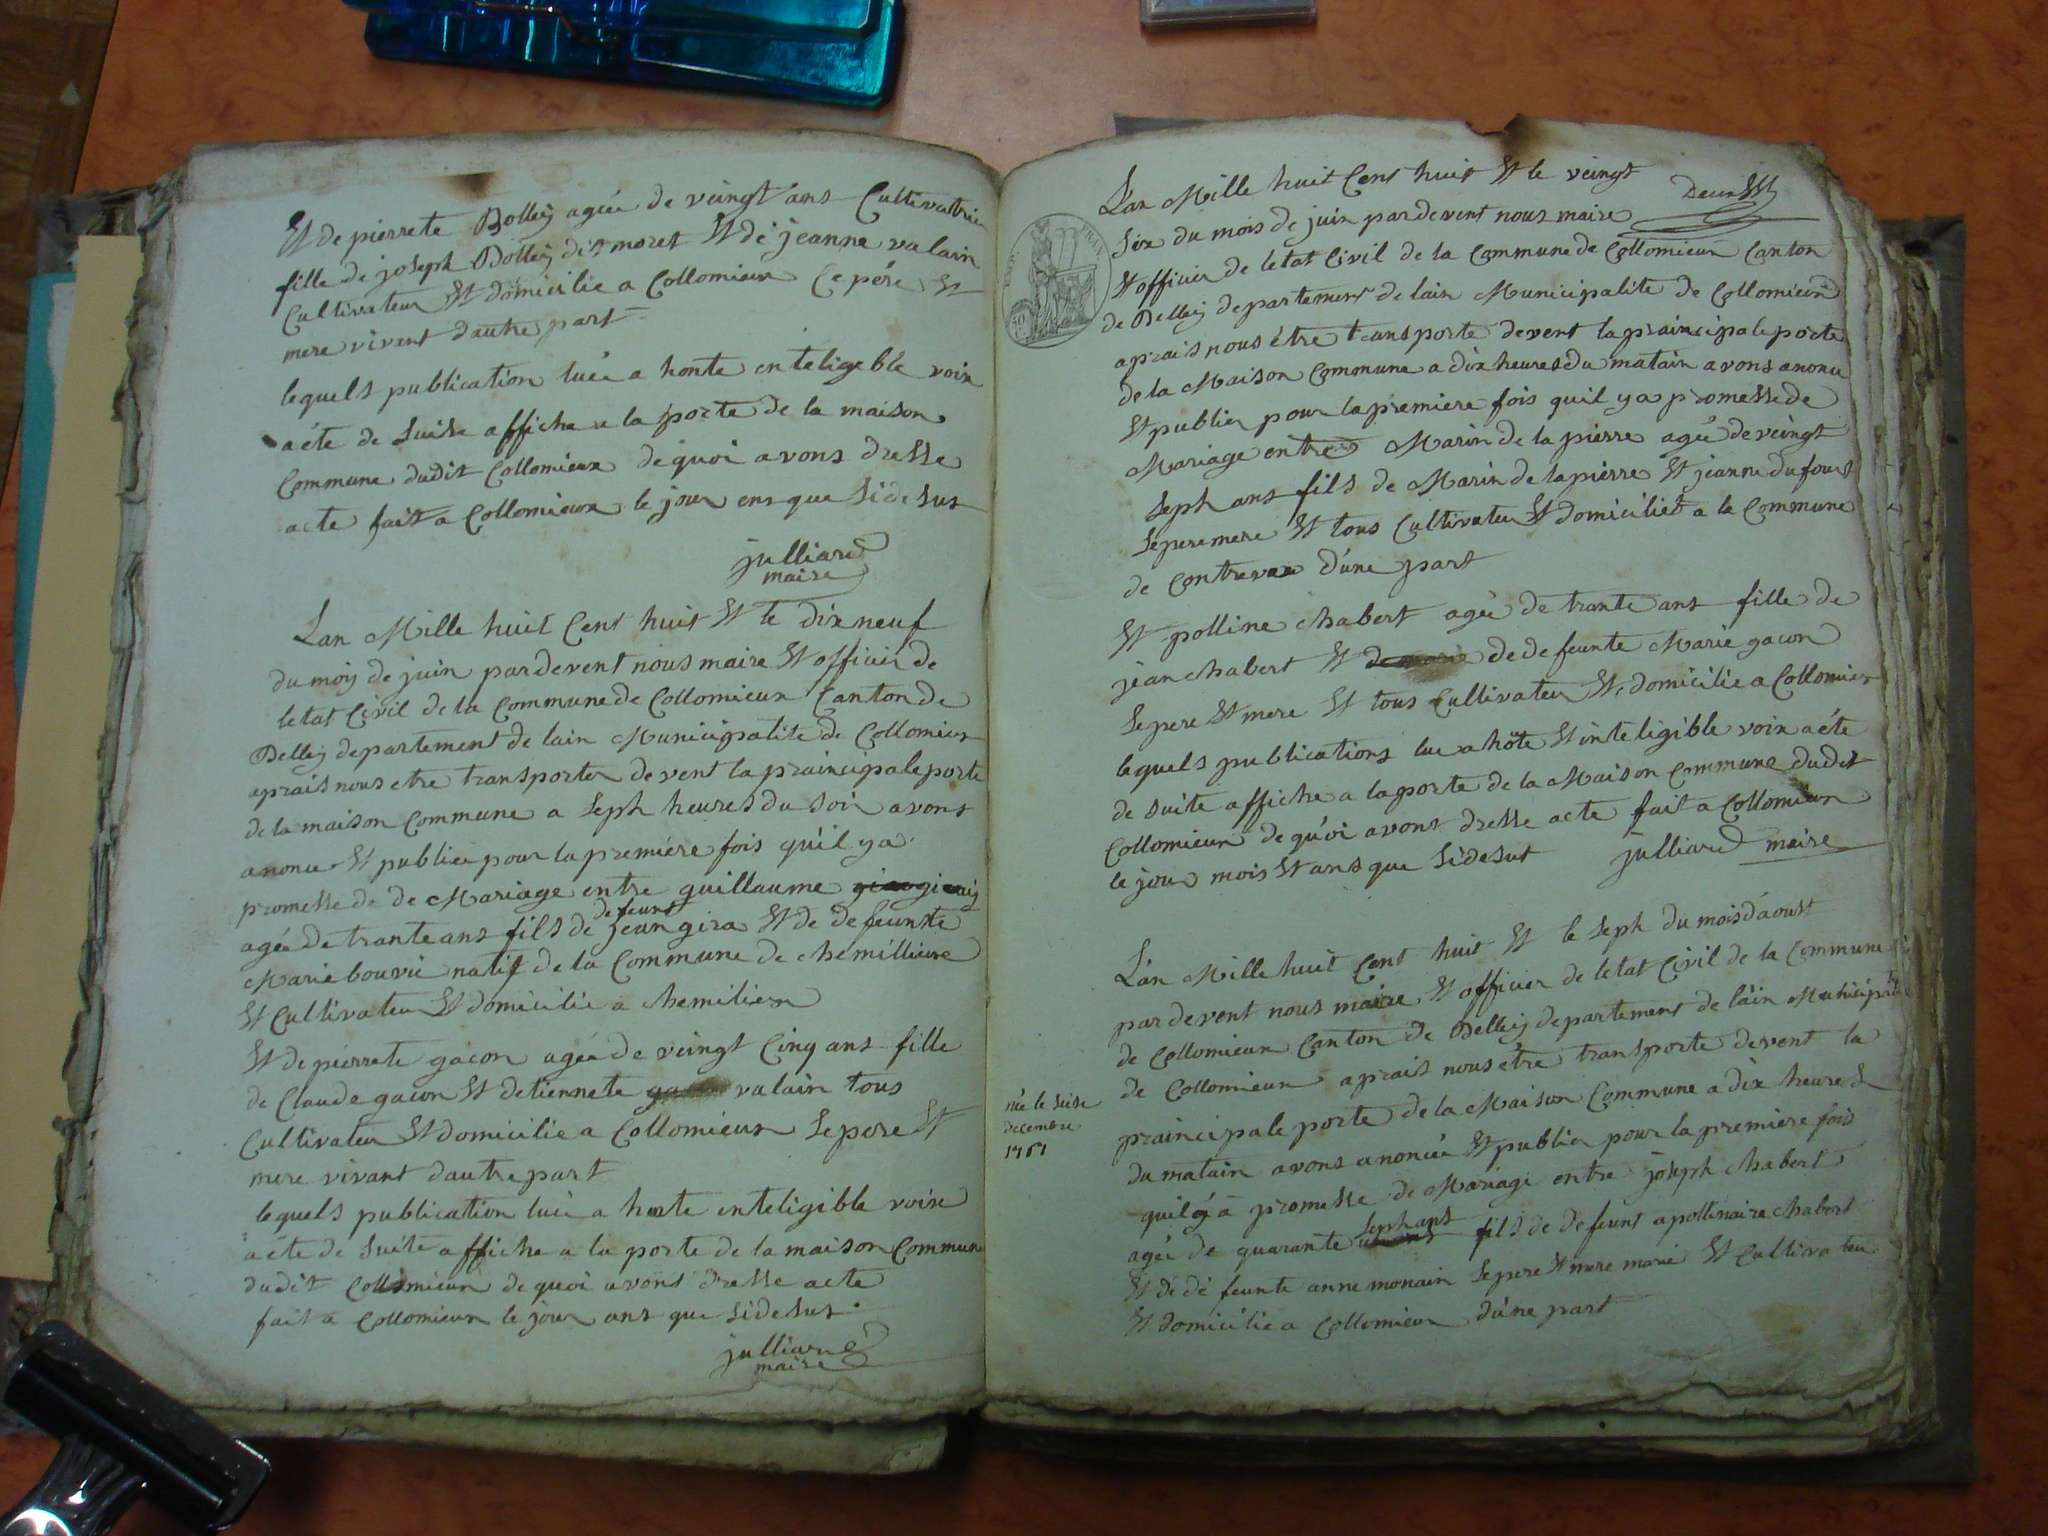 Et de pierrete Bolley agée de veingt ans Cultivatrice
fille de joseph Bolley dit moret Et de jeanne valain
Cultivateur Et domicilie a Collomieux Ce pére Et
mere vivent dautre part
lequels publication luée a honte enteligeble voix
aéte de Suite affiche a la porte de la maison
Commune dudit Collomieux dequoi avons dresse
acte fait a Collomieux le jour ens que Sidesus
julliard
maire
Lan Mille huit Cent huit Et le dixneuf
du moy de juin pardevent nous maire Et officier de
letat Civil de la Commune de Collomieux Canton de
Belley departement de lain Municipalite de Collomieux
aprais nous etre transporter devent la praincipale porte
de la maison Commune a Seph heures du Soir avons
anonce Et publier pour la premiére fois qu'il ya
promesse de de Mariage entre guillaume
agée de trante ans fils de defeunt jean gira Et de defeunte
Marie bouvié natif de la Commune de Chemilliene
Et Cultivateu Et domicilie a Chemilien
Et de pierrete gacon agée de veingt Cinq ans fille
de Claude gacon Et detiennete valain tous
Cultivateu Et domicilie a Collomieux Sepere Et
mere vivant dautre part
lequels publication luée a hute enteligible voix
aéte de Suite affiche a la porte de la maison Commune
dudit Collomieux de quoi avons dresse acte
fait a Collomieux le jour ans que Sidesus
julliard
maire
L'an Mille huit Cent huit Et le veingt
Six du mois de juin pardevent nous maire
Et officier de letat Civil de la Commune de Collomieux Canton
de Belley departement de lain Municipalite de Collomieux
aprais nous étre transporte devent la praincipale porte
de la Maison Commune a dix heures du matain avons anonce
Et publier pour la premiere fois quil ya promesse de
Mariage entre Marin de la pierre agée de veingt
Seph ans fils de Marin de lapierre Et jeanne dufour
Sepere mere Et tous Cultivateu Et domiciliét a la Commune
de Contrevoz d'une part
Et polline Chabert agée de trante ans fille de
jean Chabert Et de de feunte Marie gacon
Sepere Et mere Et tous Cultivateu Et domicilie a Collomieux
lequels publications lue a hôte Et inteligible voix aéte
de Suite affiche a la porte de la Maison Commune dudit
Collomieux de qu'oi avons dresse acte fait a Collomieux
le jour mois Et ans que Sidesut julliard maire
L'an Mille huit Cent huit Et le Seph du mois d'aoust
par devent nous maire Et officier de létat Civil de la Commune
de Collomieux Canton de Belley departement de láin Municipalite
de Collomieux aprais nous étre transporte devent la
praincipale porte de la Maison Commune a dix heures
du matain avons anoncée Et publier pour la premiere fois
quil y à promesse de Mariage entre joseph Chabert
née le Seise
decembre
1761
agée de quarante Sephans fils de defeunt apollinaire Chabert
Et de dé feunte anne monain Sepere Et mere marie Et Cultivateu
Et domicilie a Collomieux d'une part